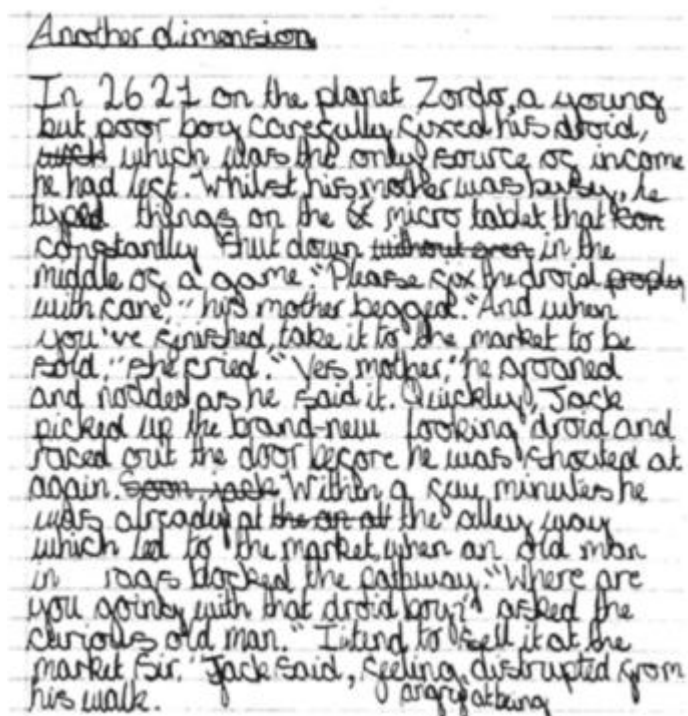 Another dimension
In 2621 on the planet Zordo, a young
but poor boy carefully fixed his droid,
which was the only source of income
he had left. Whilst his mother was busy, he
typed things on the micro tablet that
constantly shut down without even in the
middle of a game. "Please fix the droid
with care," his mother begged. "And when
you've finished, take it to the market to be
sold," she cried. "Yes mother," he groaned
and nodded as he said it. Quickly, Jack
picked up the brand-new looking droid and
raced out the door before he was shouted at
again. Soon jack Within a few minutes he
was already at the alley way
which led to the market when an old man
in rags blocked the pathway. "Where are
you going with that droid boy?" asked the
curious old man. "I intend to sell it at the
market Sir." Jack said, feeling disrupted from
his walk. angry at being